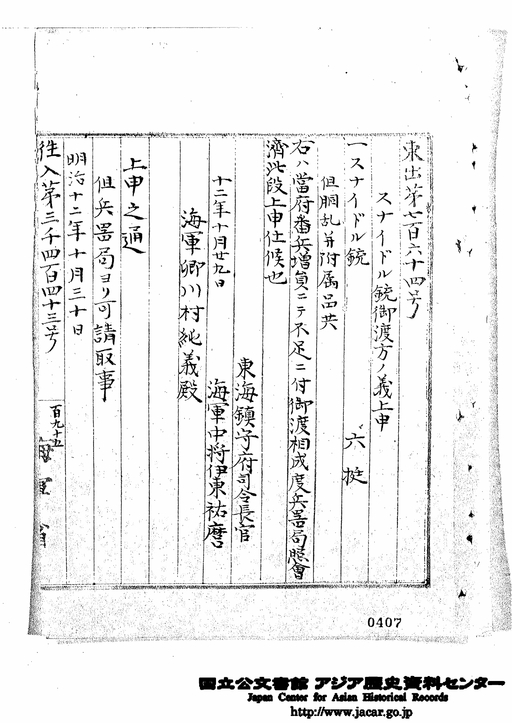 東出第七百六十四号
スナイドル銃御渡方ノ義上申
一スナイドル銃 六挺
但胴乱并附属品共
右ハ當府番兵増員ニテ不足ニ付御渡相成度兵器局照會
濟此段上申仕候也
十二年十月廿九日
東海鎮守府司令長官
海軍中将伊東祐麿
海軍卿川村純義殿
上申之通
但兵器局ヨリ可請取事
明治十二年十月三十日
往入第三千四百四十三号
百九十五
海軍省
0407
国立公文書館 アジア歴史資料センター
Japan Center for Asian Historical Records
http://www.jacar.go.jp